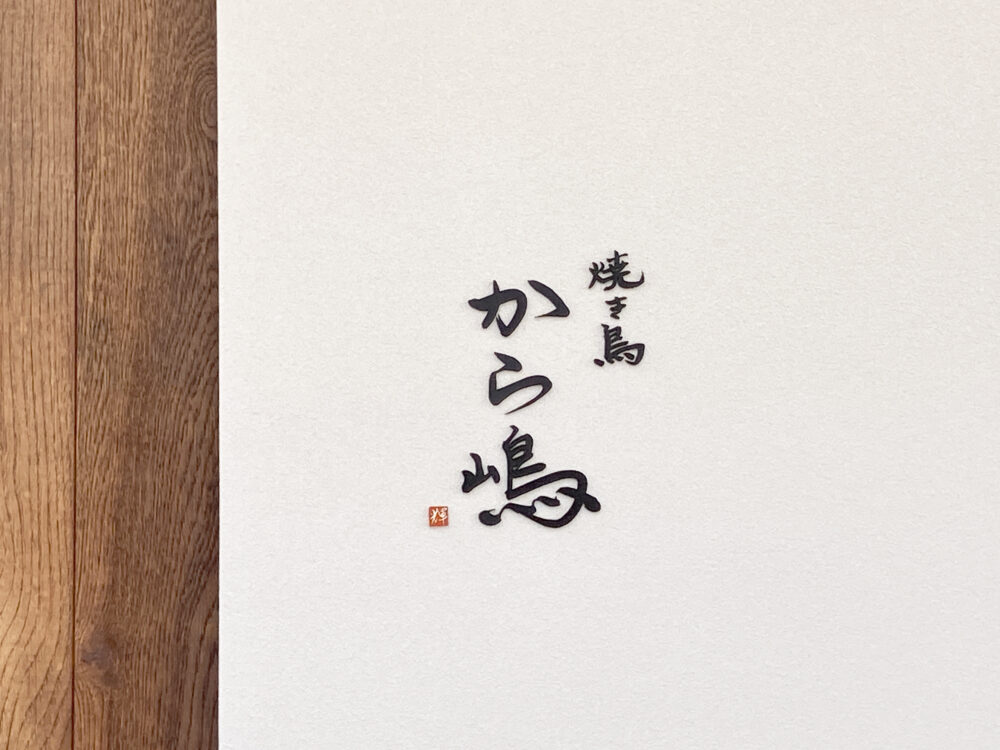 焼き鳥
から嶋
輝